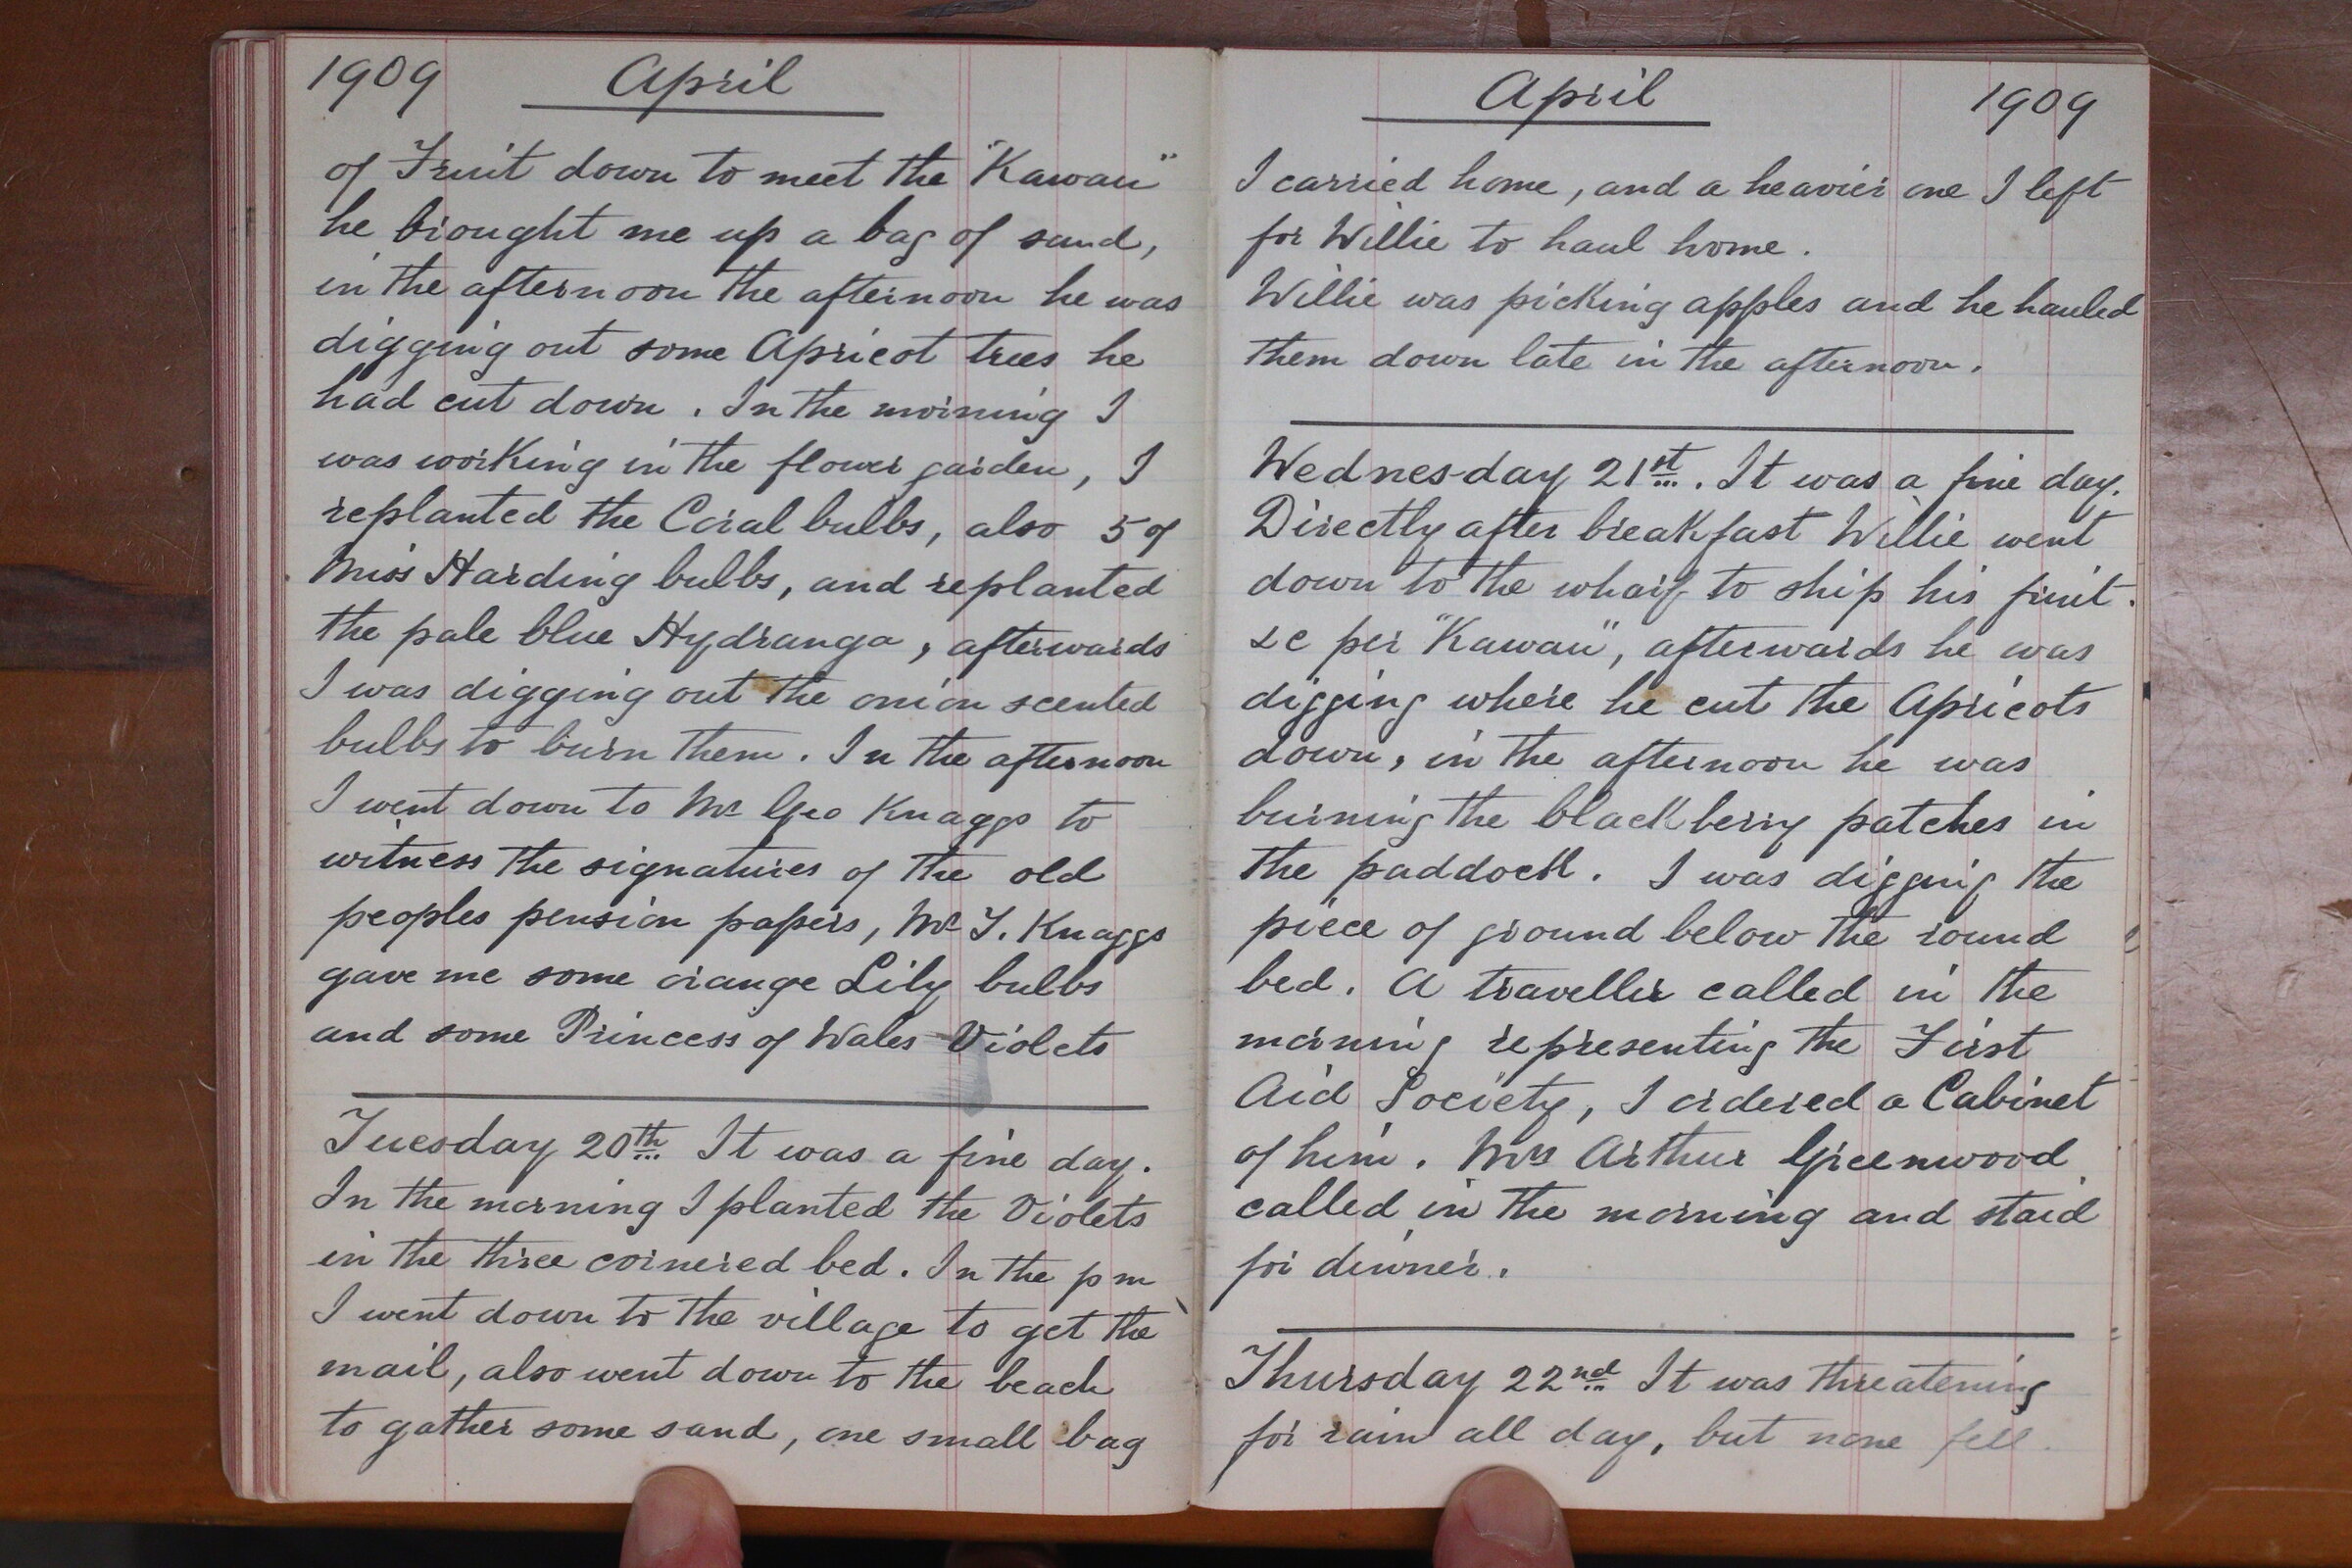 1909 April
of Fruit down to meet the "Kawau"
he brought me up a bag of sand,
in the afternoon the afternoon he was
digging out some Apricot trees he
had cut down. In the morning I
was working in the flower garden, I
replanted the Coral bulbs, also 5 of
Miss Harding bulbs, and replanted
the pale blue Hydranga, afterwards
I was digging out the onion scented
bulbs to burn them. In the afternoon
I went down to Mr Geo Knaggs to
witness the signatures of the old
peoples pension papers, Mr T. Knaggs
gave me some orange Lily bulbs
and some Princess of Wales Violets
Tuesday 20th It was a fine day.
In the morning I planted the Violets
in the three cornered bed. In the pm
I went down to the village to get the
mail, also went down to the beach
to gather some sand, one small bag
April 1909
I carried home, and a heavier one I left
for Willie to haul home.
Willie was picking apples and he hauled
them down late in the afternoon.
Wednesday 21st. It was a fine day.
Directly after breakfast Willie went
down to the wharf to ship his fruit.
&c per "Kawau", afterwards he was
digging where he cut the Apricots
down, in the afternoon he was
burning the blackberry patches in
the paddock. I was digging the
piece of ground below the round
bed. A traveller called in the
morning representing the First
Aid Society, I ordered a Cabinet
of him. Mrs Arthur Greenwood
called in the morning and staid
for dinner.
Thursday 22nd It was threatening
for rain all day, but none fell.